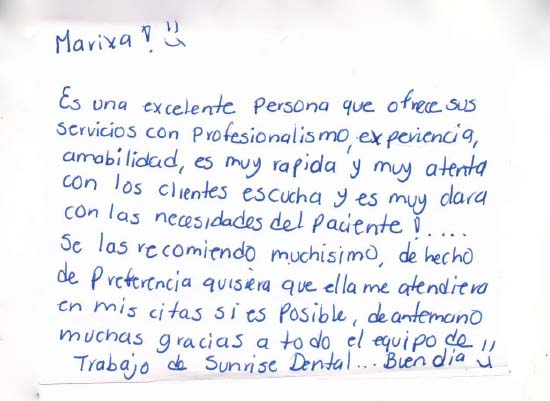 Marixa! ü
Es una excelente persona que ofrece sus
servicios con profesionalismo, experiencia,
amabilidad, es muy rapida y muy atenta
con los clientes escucha y es muy clara
con las necesidades del paciente!....
Se las recomiendo muchisimo, de hecho
de Preferencia quisiera que ella me atendiera
en mis citas si es posible, de antemano
muchas gracias a todo el equipo de
Trabajo de Sunrise Dental... Buen dia ü